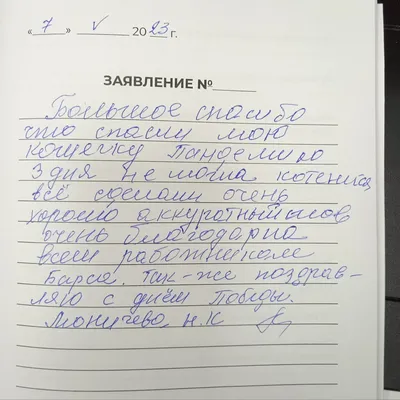 «7» V 2023 г.
ЗАЯВЛЕНИЕ №
Большое спасибо
что спасли мою
кошечку
3 дня не могла котенится
всё сделали очень
хорошо аккуратный шов
очень благодарна
всем работникам
Так-же поздрав-
ляю с днём Победы.
Моничева Н.К